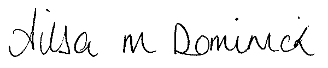 Ailsa M Dominick